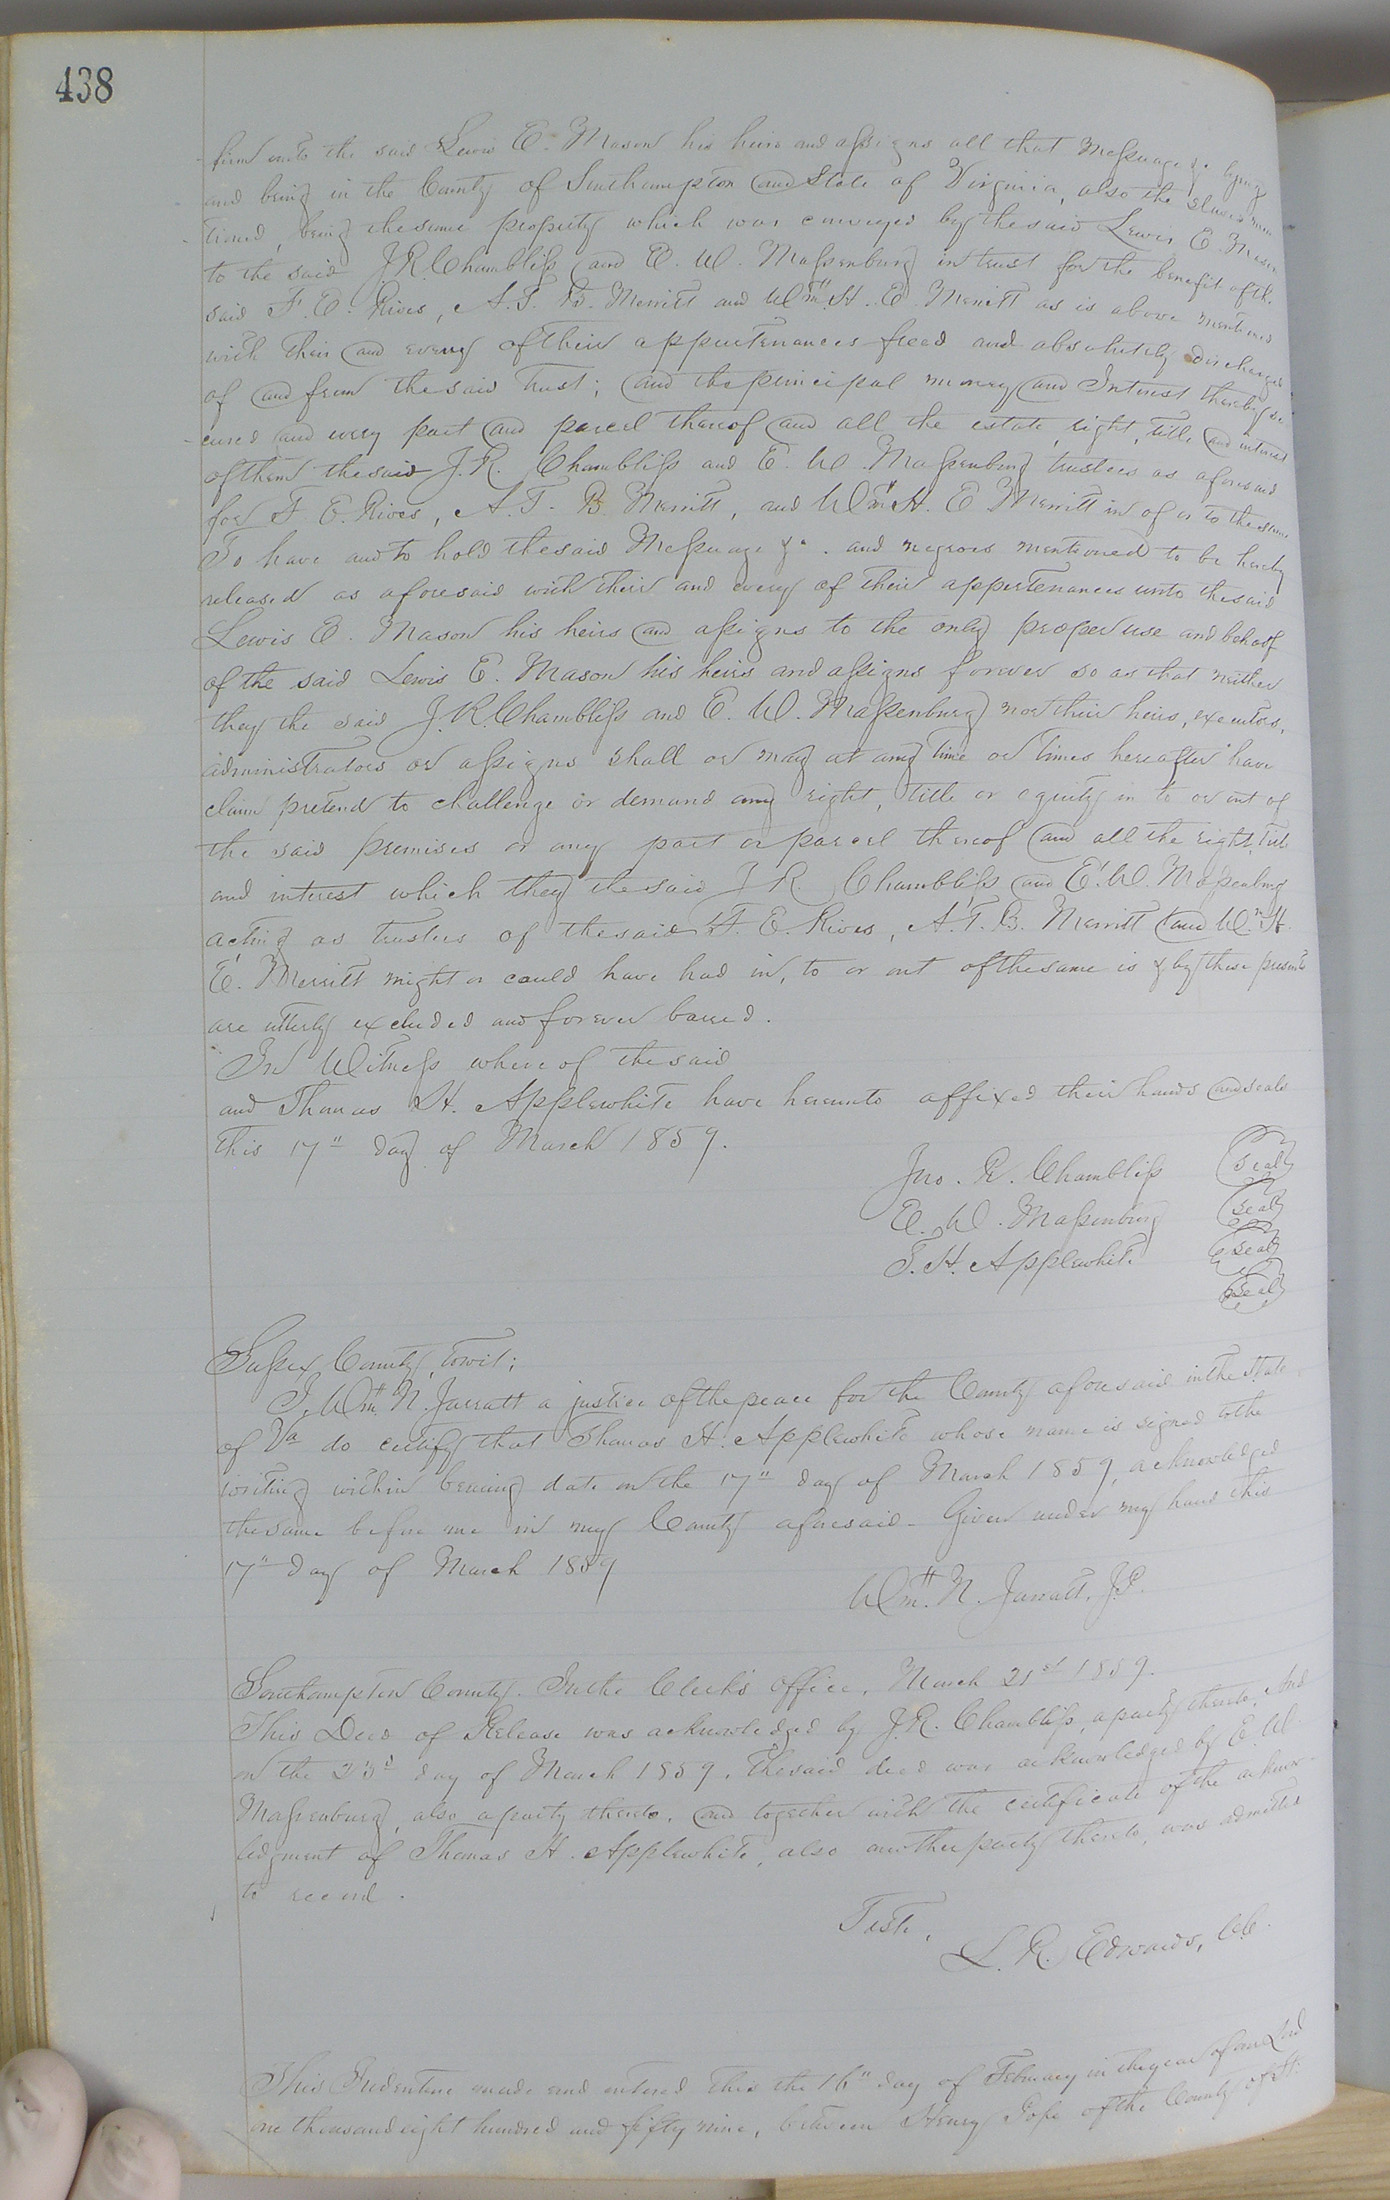 438
firm unto the said Lewis E. Mason his heirs and assigns all that Messuage &c lying
and being in the County of Southampton and State of Virginia, also the slaves men
tioned, being the same property which was conveyed by the said Lewis E. Mason
to the said J R Chambliss and E. W. Massenburg in trust for the benefit of the
said F. E. Rives, A. T. B. Merritt and Wm. H. E. Merritt as is above mentioned
with their and every of their appurtenances freed and absolutely discharged
of and from the said Trust; and the principal money and Interest thereby se
cured and every part and parcel thereof and all the estate, right, title and interest
of them the said J. R. Chambliss and E. W. Massenburg trustees as aforesaid
for F. E. Rives, A. T. B Merritt, and Wm H. E Merritt in of or to the same
To have and to hold the said Messuage &c. and negroes mentioned to be hereby
released as aforesaid with their and every of their appertenances unto the said
Lewis E. Mason his heirs and assigns to the only proper use and behoof
of the said Lewis E. Mason his heirs and assigns forever so as that neither
they the said J. R. Chambliss and E. W. Massenburg nor their heirs, executors,
administrators or assigns shall or may at any time or times hereafter have
claim pretend to challenge or demand any right, title or equity in to or out of
the said premises or any part or parcel thereof and all the right, title
and interest which they the said J R. Chambliss and E. W. Massenburg
acting as trustees of the said F. E. Rives, A. T. B. Merritt and Wm. H.
E. Merritt might or could have had in, to or out of the same is & by these presents
are utterly excluded and forever barred.
In Witness where of the said
and Thomas H. Applewhite have hereunto affixed their hands and seals
this 17" day of March 1859.
Jno. R. Chambliss seal
E. W. Massenburg seal
T. H. Applewhite seal
seal
Sussex County, towit;
I, Wm. N. Jarratt a justice of the peace for the County aforesaid in the State
of Va do certify that Thomas H. Applewhite whose name is signed to the
writing within bearing date on the 17" day of March 1859, acknowledged
the same before me in my County aforesaid - Given under my hand this
17" day of March 1859
Wm. N. Jarratt, J.P.
Southampton County. In the Clerk's office, March 21st 1859.
This Deed of Release was acknowledged by J. R. Chambliss, a party thereto, And
on the 23d day of March 1859, the said deed was acknowledged by E. W.
Massenburg, also a party thereto, and together with the certificate of the acknow
ledgment of Thomas H. Applewhite, also another party thereto, was admitted
to record.
Teste,
L. R. Edwards, CC.
This Indenture made and entered this the 16" day of February in the year of our Lord
one thousand eight hundred and fifty nine, between Henry Pope of the County of St: